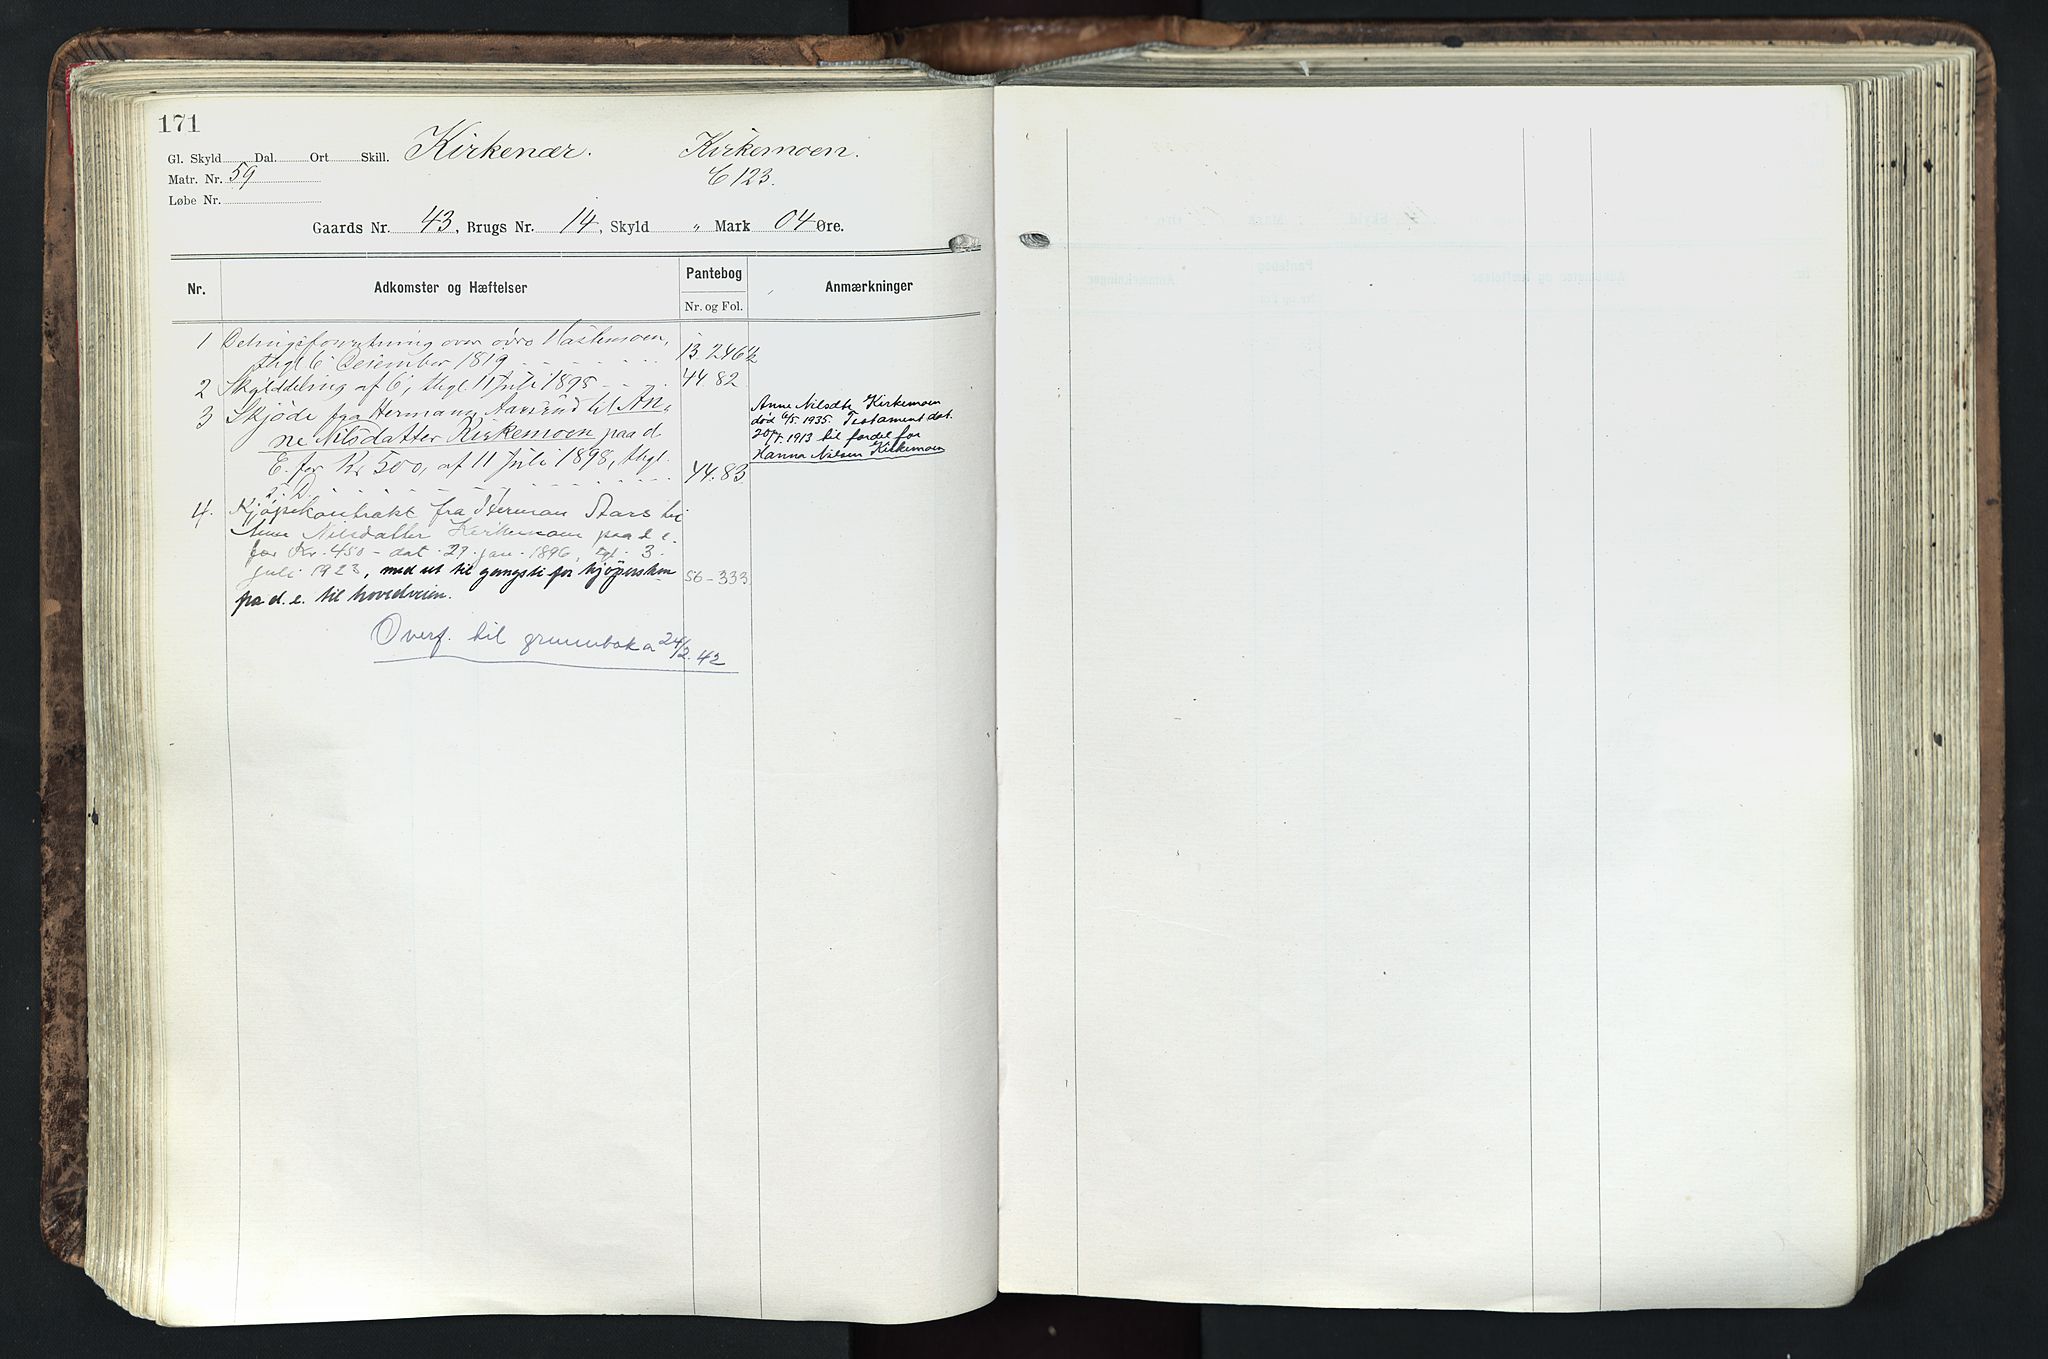 171
Gl. Skyld Dal. Ort Skill. Kirkenær. Kirkemoen.
Matr. Nr. 59 C 123.
Løbe Nr.
Gaards Nr. 43, Brugs Nr. 14, Skyld „ Mark 04 Øre.
Nr. Adkomster og Hæftelser Pantebog Anmærkninger
Nr. og Fol.
1 Delingsforretning over øvre
thgl 6 December 1819 13. 246½
2 Skylddeling af 6, thgl 11 Juli 1898 44. 82
3 Skjøde fra Hermann til An-
ne Nilsdatter Kirkemoen paa d
E. for Kr 500, af 11 Juli 1898, thgl.
s. D. 44. 83
Anne Nilsdtr Kirkemoen
død 6/5 1935. Testament dat.
20/1 1913 til fordel for
Hanna Nilsen Kirkemoen
4. Kjøpekontrakt fra Herman Aars til
Anne Nilsdatter Kirkemoen paa d e.
for Kr. 450 - dat. 27. jan. 1896, tgl. 3.
juli 1923, med ret til gangsti for kjøpersken
pa d. e. til hovedveien. 56-333
Overf. til grunnboka 24/2. 42